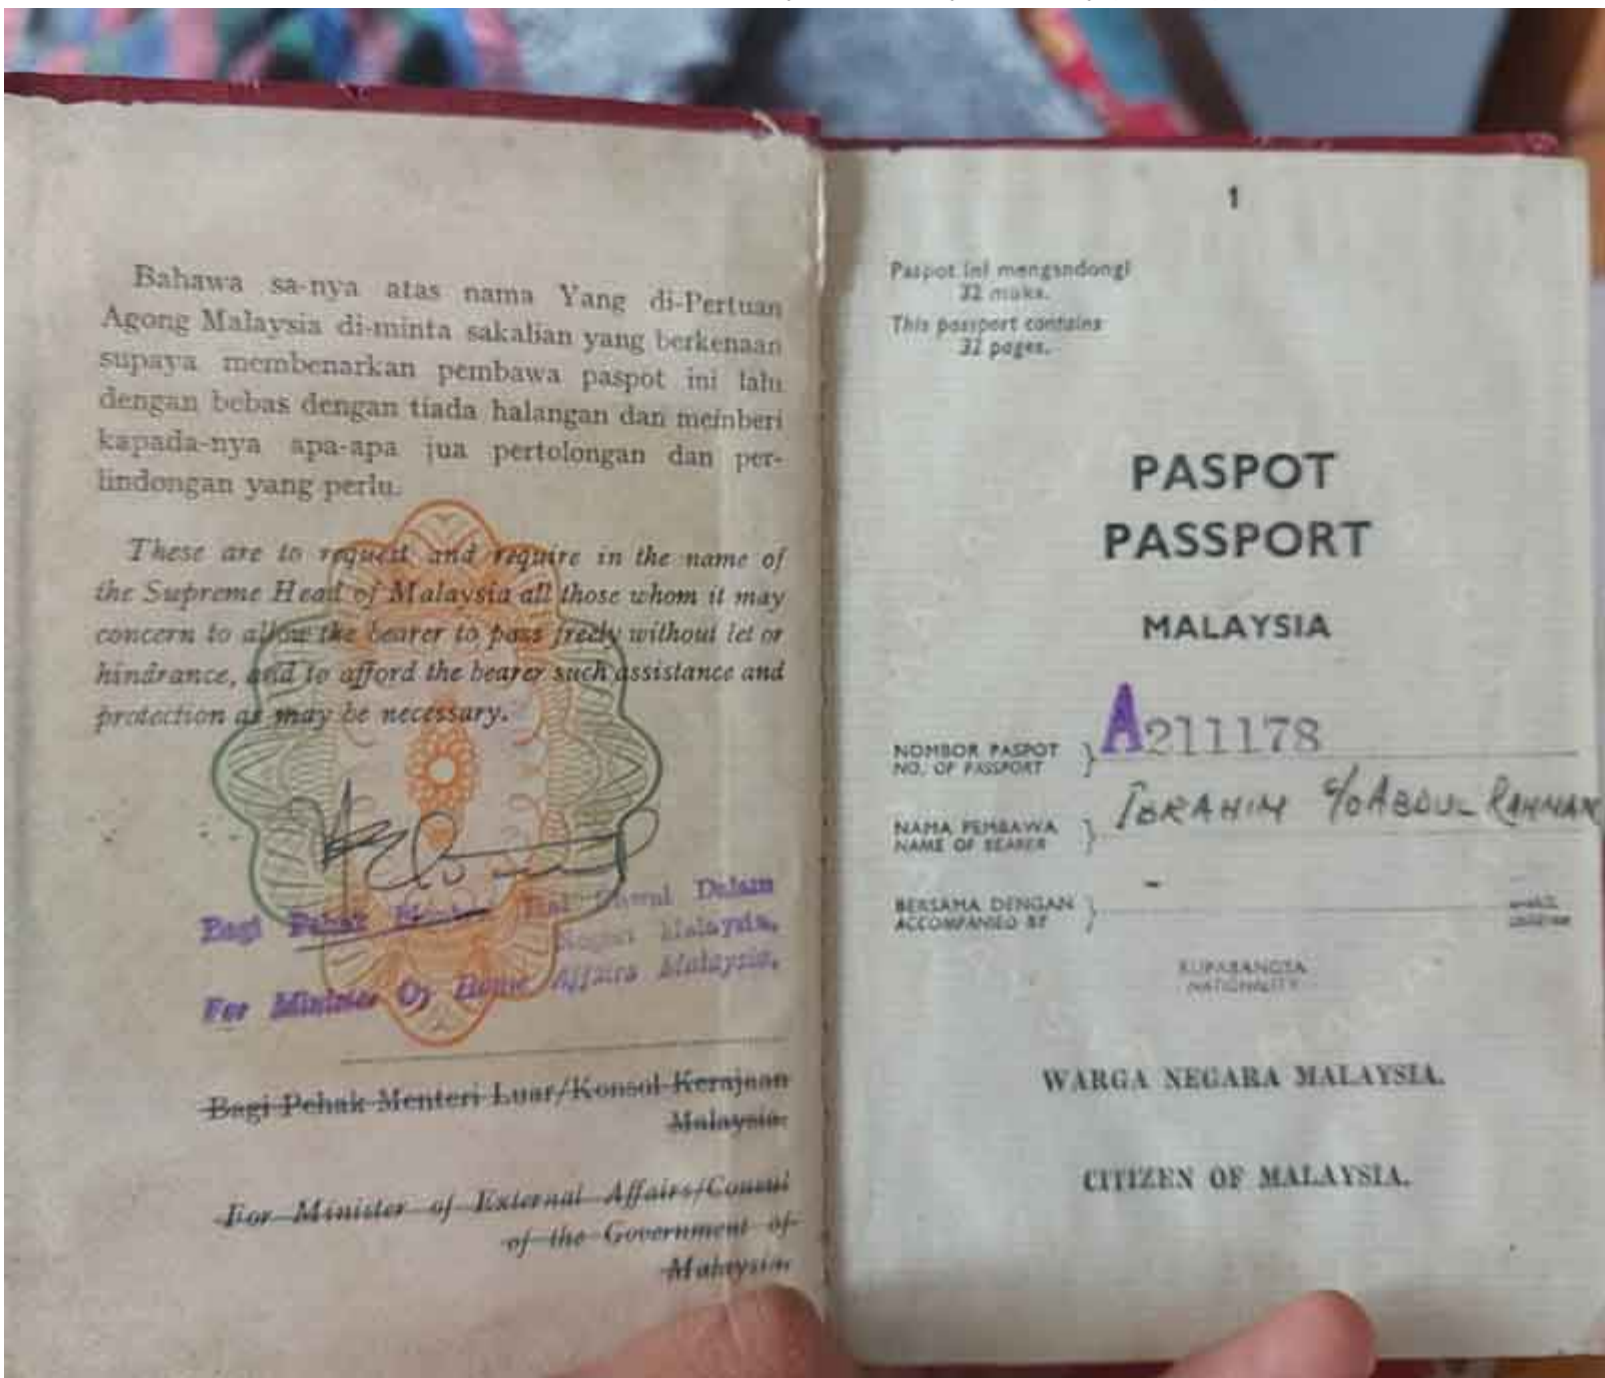 Bahawa sa-nya atas nama Yang di-Pertuan
Agong Malaysia di-minta sakalian yang berkenaan
supaya membenarkan pembawa paspot ini lalu
dengan bebas dengan tiada halangan dan memberi
kapada-nya apa-apa jua pertolongan dan per-
lindongan yang perlu.
These are to request and require in the name of
the Supreme Head of Malaysia all those whom it may
concern to allow the bearer to pass freely without let or
hindrance, and to afford the bearer such assistance and
protection as may be necessary.
Bagi Pehak Menteri Hal Ehwal Dalam
Negeri Malaysia.
For Minister Of Home Affairs Malaysia.
Bagi Pehak Menteri Luar/Konsol Kerajaan
Malaysia.
For Minister of External Affairs/Consul
of the Government of
Malaysia.
1
Paspot ini mengandongi
32 muka.
This passport contains
32 pages.
PASPOT
PASSPORT
MALAYSIA
NOMBOR PASPOT
NO. OF PASSPORT
A211178
NAMA PEMBAWA
NAME OF BEARER
IBRAHIM S/O ABDUL RAHMAN
BERSAMA DENGAN
ACCOMPANIED BY
-
children
RUPABANGSA
NATIONALITY
WARGA NEGARA MALAYSIA.
CITIZEN OF MALAYSIA.